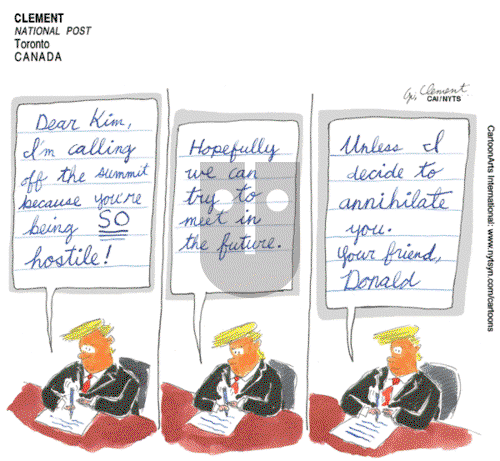 CLEMENT
NATIONAL POST
Toronto
CANADA
Clement
CAI/NYTS
Dear Kim,
I'm calling
off the summit
because you're
being SO
hostile!
Hopefully
we can
try to
meet in
the future.
Unless I
decide to
annihilate
you.
Your friend,
Donald
CartoonArts International: www.nytsyn.com/cartoons